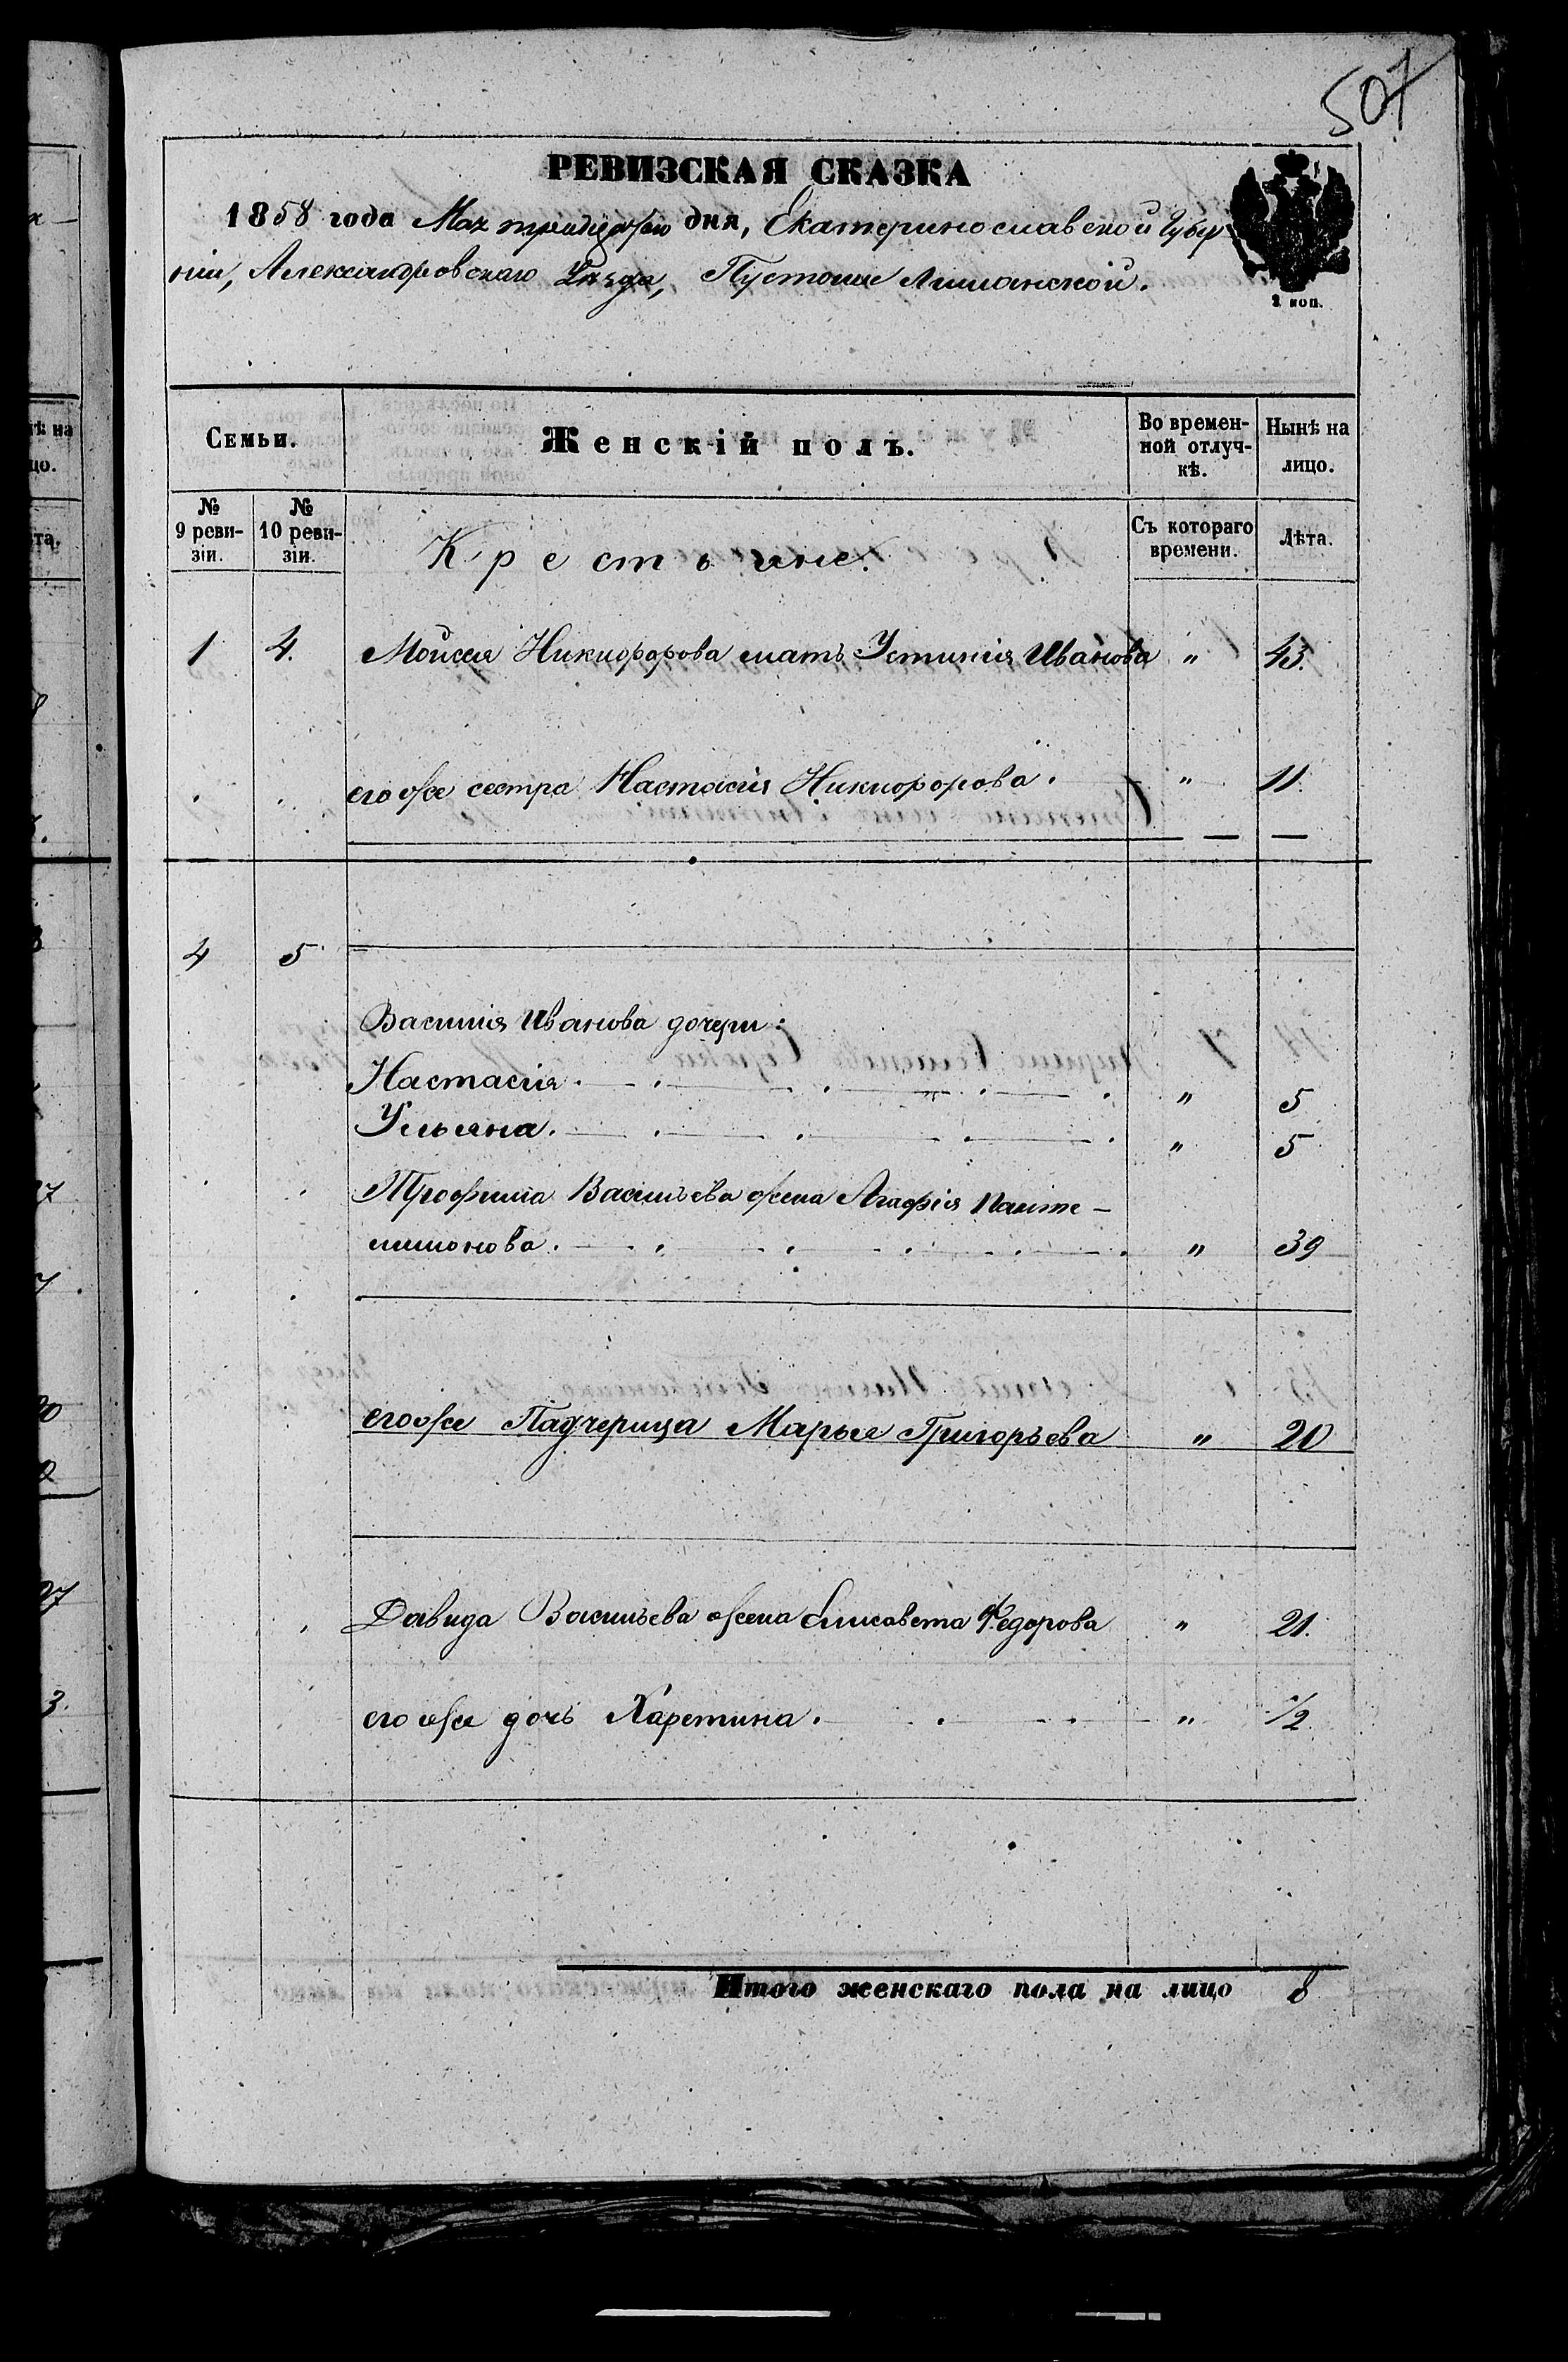 507
РЕВИЗСКАЯ СКАЗКА
1858 года Мая тридцатаго дня, Екатеринославской Губер
ніи, Александровскаго Уезда, Пустоши Лиманской.
2 коп.
Семьи. Женскій полъ. Во времен- Нынѣ на
ной отлуч- лицо.
кѣ.
№ № Съ котораго Лѣта.
9 реви- 10 реви- времени.
зіи. зіи.
Крестьяне.
1 4. Моисея Никифорова мать Устинія Иванова " 43.
его же сестра Настасія Никифорова. " 11
4 5
Василія Иванова дочери:
Настасія. " 5
Ульяна. " 5
Трофима Васильева жена Агафія Панте-
лимонова. " 39
его же Падчерица Марья Григорьева " 20
Давида Васильева жена Елисавета Федорова " 21.
его же дочь Харетина. " 1/2
Итого женскаго пола на лицо 8